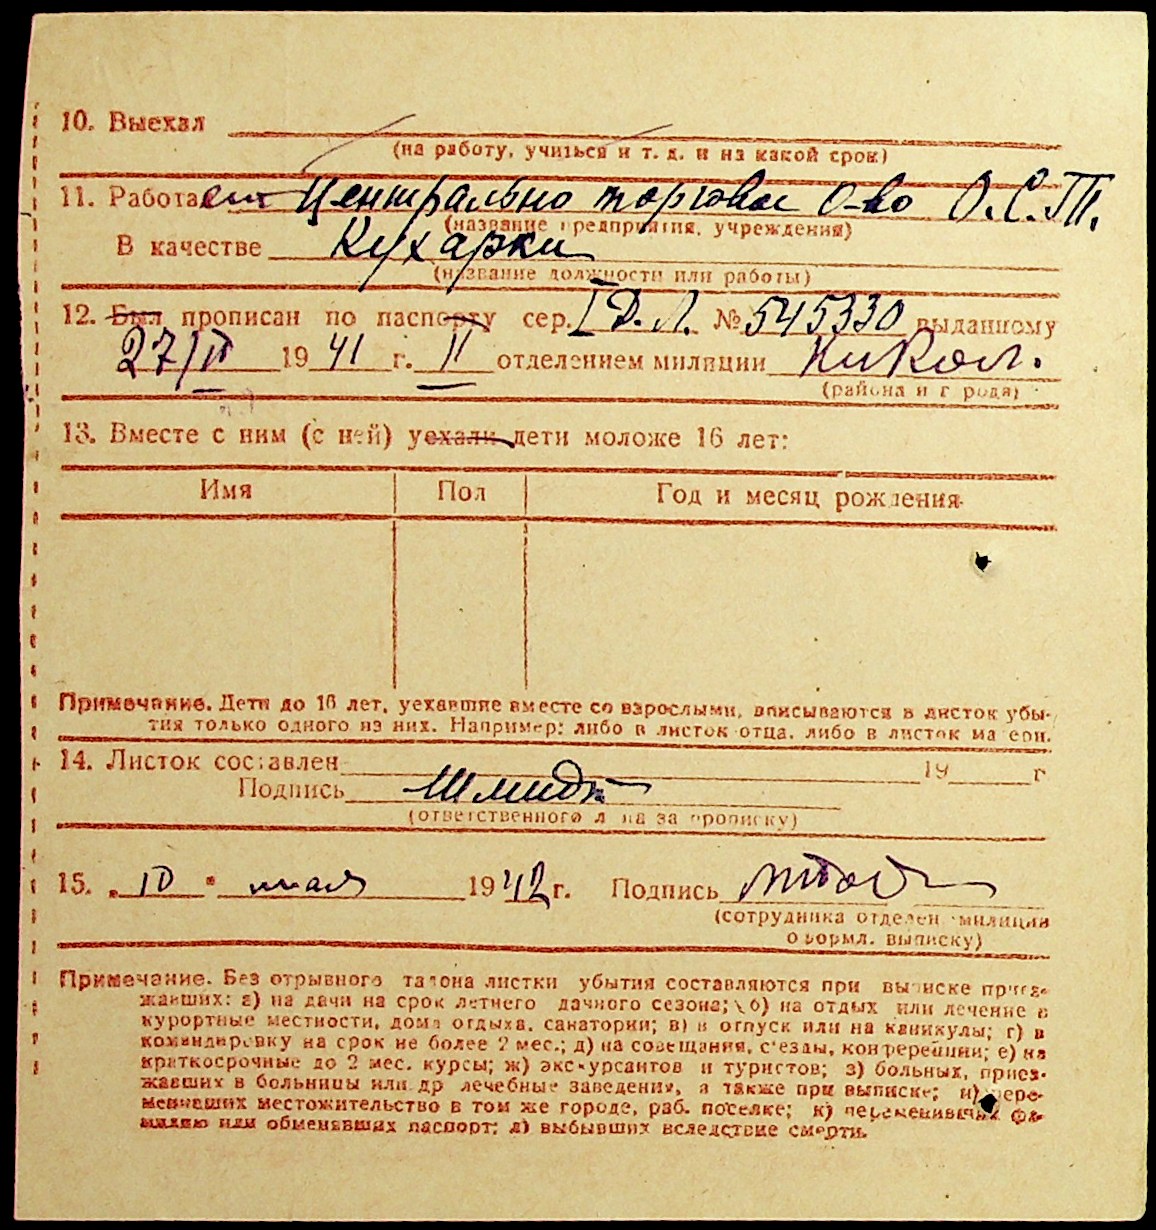 10. Выехал
(на работу, учиться и т. д. и на какой срок)
11. Работает Центрально торговое о-во О.С.Т.
(название предприятия, учреждения)
В качестве Кухарки
(название должности или работы)
12. Был прописан по паспорту сер. I Д.Л. № 545330 выданному
27/II 1941 г. II отделением милиции Никол.
(района и города)
13. Вместе с ним (с ней) уехали дети моложе 16 лет:
Имя Пол Год и месяц рождения
Примечание. Дети до 16 лет, уехавшие вместе со взрослыми, вписываются в листок убы-
тия только одного из них. Например: либо в листок отца, либо в листок матери.
14. Листок составлен 19 г
Подпись Шмидт
(ответственного лица за прописку)
15. „ 10 " мая 1942 г. Подпись
(сотрудника отделен. милиции
оформл. выписку)
Примечание. Без отрывного талона листки убытия составляются при выписке приез-
жавших: а) на дачи на срок летнего дачного сезона; б) на отдых или лечение в
курортные местности, дома отдыха, санатории; в) в отпуск или на каникулы; г) в
командировку на срок не более 2 мес.; д) на совещания, с'езды, конференции; е) на
краткосрочные до 2 мес. курсы; ж) экскурсантов и туристов; з) больных, приез-
жавших в больницы или др лечебные заведения, а также при выписке; и) пере-
менивших местожительство в том же городе, раб. поселке; к) переменивших фа-
милию или обменявших паспорт; л) выбывших вследствие смерти.